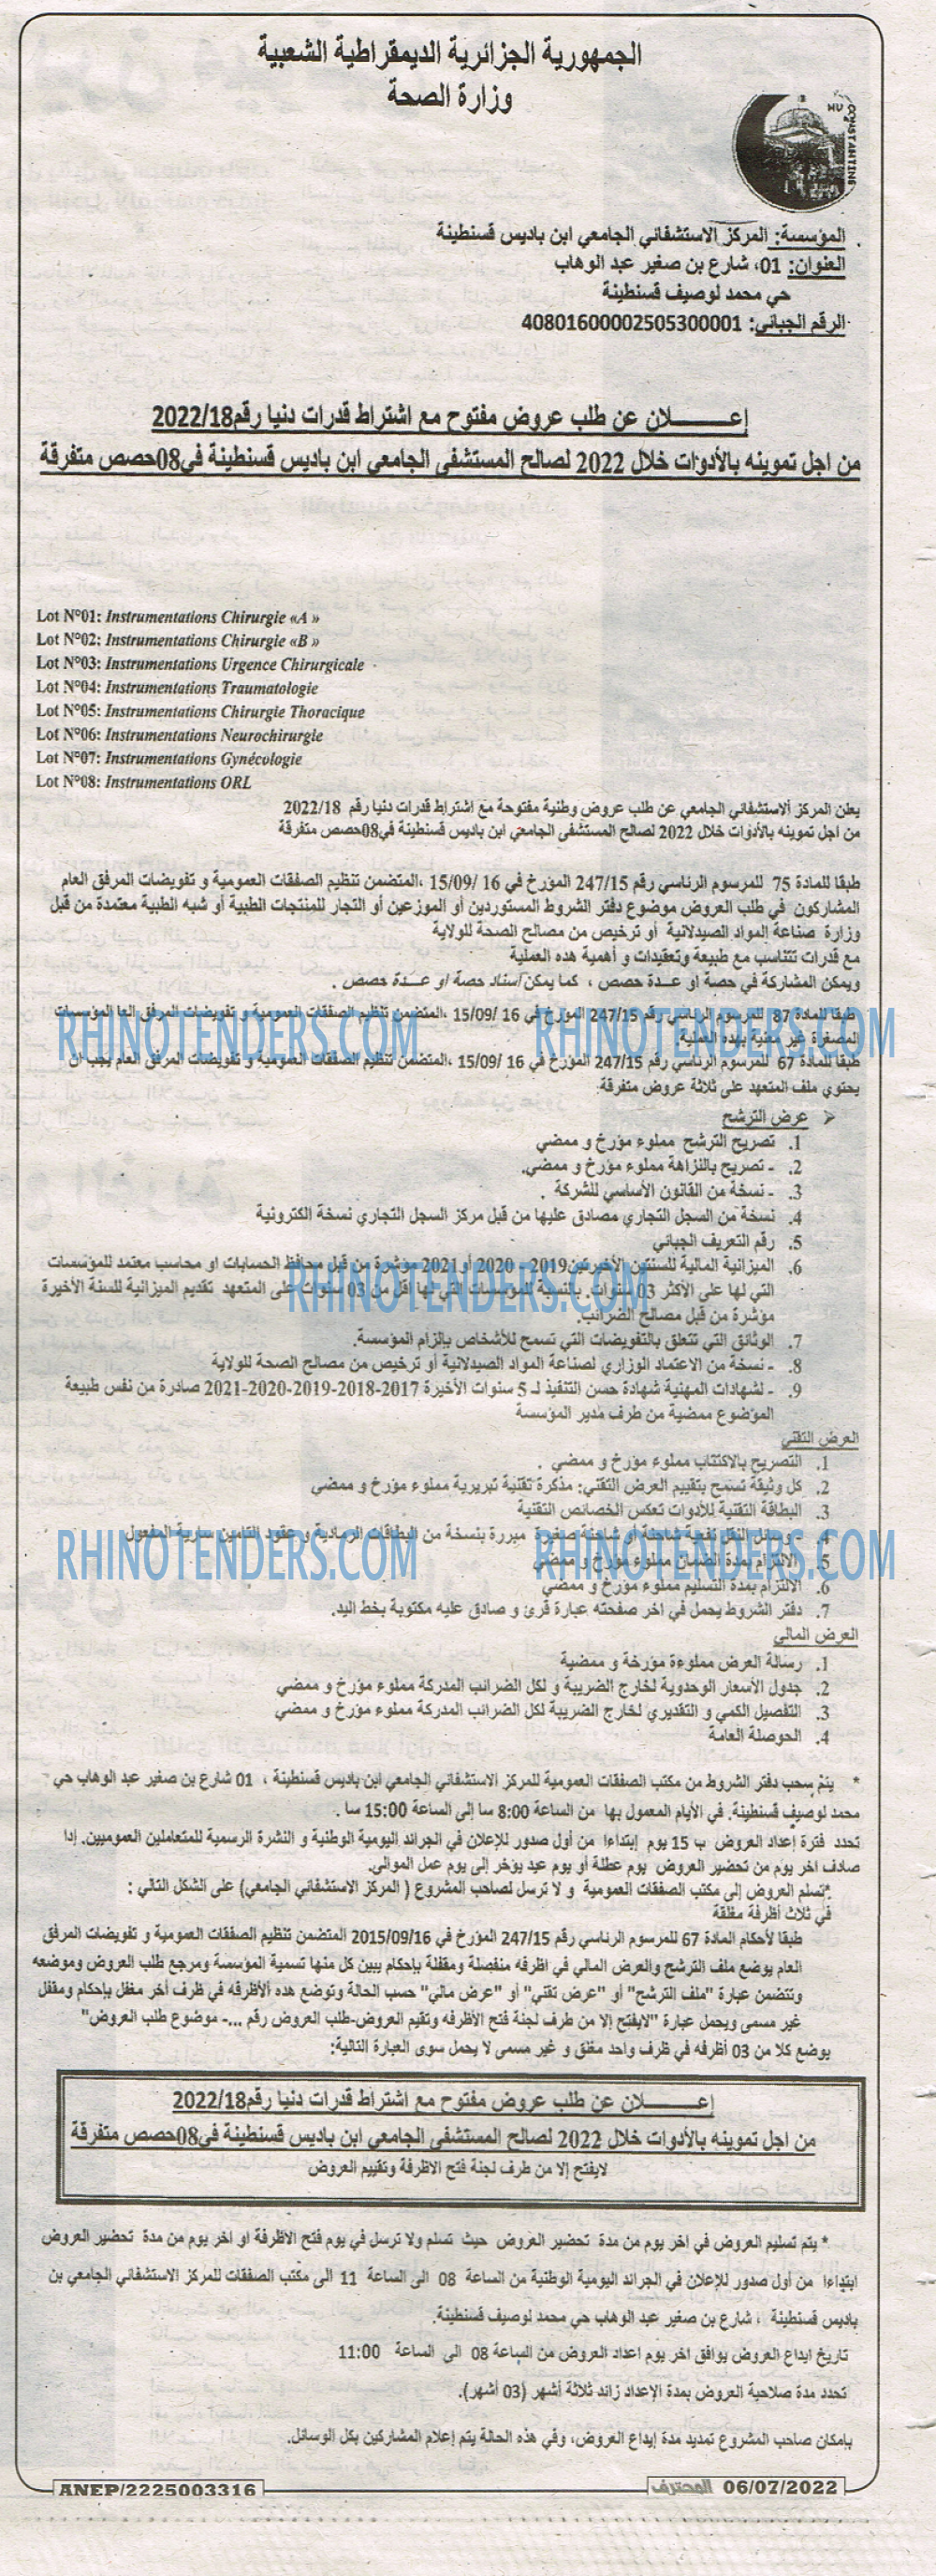 الجمهورية الجزائرية الديمقراطية الشعبية
وزارة الصحة
HU CONSTANTINE
المؤسسة: المركز الاستشفائي الجامعي ابن باديس قسنطينة
العنوان: 01، شارع بن صغير عبد الوهاب
حي محمد لوصيف قسنطينة
الرقم الجبائي: 40801600002505300001
إعـــــــلان عن طلب عروض مفتوح مع اشتراط قدرات دنيا رقم2022/18
من اجل تموينه بالأدوات خلال 2022 لصالح المستشفى الجامعي ابن باديس قسنطينة في08حصص متفرقة
Lot N°01: Instrumentations Chirurgie «A »
Lot N°02: Instrumentations Chirurgie «B »
Lot N°03: Instrumentations Urgence Chirurgicale
Lot N°04: Instrumentations Traumatologie
Lot N°05: Instrumentations Chirurgie Thoracique
Lot N°06: Instrumentations Neurochirurgie
Lot N°07: Instrumentations Gynécologie
Lot N°08: Instrumentations ORL
يعلن المركز ألاستشفائي الجامعي عن طلب عروض وطنية مفتوحة مع اشتراط قدرات دنيا رقم 2022/18
من اجل تموينه بالأدوات خلال 2022 لصالح المستشفى الجامعي ابن باديس قسنطينة في08حصص متفرقة
طبقا للمادة 75 للمرسوم الرئاسي رقم 247/15 المؤرخ في 16 /15/09 ،المتضمن تنظيم الصفقات العمومية و تفويضات المرفق العام
المشاركون في طلب العروض موضوع دفتر الشروط المستوردين أو الموزعين أو التجار للمنتجات الطبية أو شبه الطبية معتمدة من قبل
وزارة صناعة المواد الصيدلانية أو ترخيص من مصالح الصحة للولاية
مع قدرات تتناسب مع طبيعة وتعقيدات و أهمية هده العملية
ويمكن المشاركة في حصة او عـدة حصص ، كما يمكن اسناد حصة او عـــدة حصص .
طبقا للمادة 87 للمرسوم الرئاسي رقم 247/15 المؤرخ في 16 /15/09 ،المتضمن تنظيم الصفقات العمومية و تفويضات المرفق العا المؤسسات
RHINOTENDERS.COM RHINOTENDERS.COM
المصغرة غير معنية بهده العملية.
طبقا للمادة 67 للمرسوم الرئاسي رقم 247/15 المؤرخ في 16 /15/09 ،المتضمن تنظيم الصفقات العمومية و تفويضات المرفق العام يجب ان
يحتوي ملف المتعهد على ثلاثة عروض متفرقة:
➤ عرض الترشح
1. تصريح الترشح مملوء مؤرخ و ممضي
2. - تصريح بالنزاهة مملوء مؤرخ و ممضي.
3. - نسخة من القانون الأساسي للشركة .
4. نسخة من السجل التجاري مصادق عليها من قبل مركز السجل التجاري نسخة الكترونية
5. رقم التعريف الجبائي
6. الميزانية المالية للسنتين الأخيرتين2019- 2020 أو2021 مؤشرة من قبل محافظ الحسابات او محاسب معتمد للمؤسسات
RHINOTENDERS.COM
التي لها على الأكثر 03 سنوات. بالنسبة للمؤسسات التي لها اقل من 03 سنوات على المتعهد تقديم الميزانية للسنة الأخيرة
مؤشرة من قبل مصالح الضرائب.
7. الوثائق التي تتعلق بالتفويضات التي تسمح للأشخاص بإلزام المؤسسة.
8. - نسخة من الاعتماد الوزاري لصناعة المواد الصيدلانية أو ترخيص من مصالح الصحة للولاية
9. - لشهادات المهنية شهادة حسن التنفيذ لـ 5 سنوات الأخيرة 2017-2018-2019-2020-2021 صادرة من نفس طبيعة
الموضوع ممضية من طرف مدير المؤسسة
العرض التقني
1. التصريح بالاكتتاب مملوء مؤرخ و ممضي .
2. كل وثيقة تسمح بتقييم العرض التقني: مذكرة تقنية تبريرية مملوء مؤرخ و ممضي
3. البطاقة التقنية للأدوات تعكس الخصائص التقنية
4. وسائل النقل نفعية شاحنة أو شاحنة صغيرة مبررة بنسخة من البطاقات الرمادية و عقود التامين سارية المفعول
RHINOTENDERS.COM RHINOTENDERS.COM
5. الالتزام بمدة الضمان مملوء مؤرخ و ممضي
6. الالتزام بمدة التسليم مملوء مؤرخ و ممضي
7. دفتر الشروط يحمل في اخر صفحته عبارة قرئ و صادق عليه مكتوبة بخط اليد.
العرض المالي
1. رسالة العرض مملوءة مؤرخة و ممضية
2. جدول الأسعار الوحدوية لخارج الضريبة و لكل الضرائب المدركة مملوء مؤرخ و ممضي
3. التفصيل الكمي و التقديري لخارج الضريبة لكل الضرائب المدركة مملوء مؤرخ و ممضي
4. الحوصلة العامة
* يتم سحب دفتر الشروط من مكتب الصفقات العمومية للمركز الاستشفائي الجامعي ابن باديس قسنطينة ، 01 شارع بن صغير عبد الوهاب حي
محمد لوصيف قسنطينة. في الأيام المعمول بها من الساعة 8:00 سا إلى الساعة 15:00 سا .
تحدد فترة إعداد العروض ب 15 يوم إبتداءا من أول صدور للإعلان في الجرائد اليومية الوطنية و النشرة الرسمية للمتعاملين العموميين. إدا
صادف اخر يوم من تحضير العروض يوم عطلة أو يوم عيد يؤخر إلى يوم عمل الموالي.
*تسلم العروض إلى مكتب الصفقات العمومية و لا ترسل لصاحب المشروع ( المركز الاستشفائي الجامعي) على الشكل التالي :
في ثلاث أظرفة مغلقة
طبقا لأحكام المادة 67 للمرسوم الرئاسي رقم 247/15 المؤرخ في 2015/09/16 المتضمن تنظيم الصفقات العمومية و تفويضات المرفق
العام يوضع ملف الترشح والعرض المالي في اظرفه منفصلة ومقفلة بإحكام يبين كل منها تسمية المؤسسة ومرجع طلب العروض وموضعه
وتتضمن عبارة "ملف الترشح" أو "عرض تقني" أو "عرض مالي" حسب الحالة وتوضع هده الأظرفه في ظرف أخر مغفل بإحكام ومقفل
غير مسمى ويحمل عبارة "لايفتح إلا من طرف لجنة فتح الأظرفه وتقيم العروض-طلب العروض رقم ...- موضوع طلب العروض"
يوضع كلا من 03 أظرفه في ظرف واحد مغلق و غير مسمى لا يحمل سوى العبارة التالية:
إعـــــــلان عن طلب عروض مفتوح مع اشتراط قدرات دنيا رقم2022/18
من اجل تموينه بالأدوات خلال 2022 لصالح المستشفى الجامعي ابن باديس قسنطينة في08حصص متفرقة
لايفتح إلا من طرف لجنة فتح الاظرفة وتقييم العروض
* يتم تسليم العروض في اخر يوم من مدة تحضير العروض حيث تسلم ولا ترسل في يوم فتح الاظرفة او اخر يوم من مدة تحضير العروض
ابتداءا من أول صدور للإعلان في الجرائد اليومية الوطنية من الساعة 08 الى الساعة 11 الى مكتب الصفقات للمركز الاستشفائي الجامعي بن
باديس قسنطينة ، شارع بن صغير عبد الوهاب حي محمد لوصيف قسنطينة.
تاريخ ايداع العروض يوافق اخر يوم اعداد العروض من الساعة 08 الى الساعة 11:00
تحدد مدة صلاحية العروض بمدة الإعداد زائد ثلاثة أشهر (03 أشهر).
بإمكان صاحب المشروع تمديد مدة إيداع العروض، وفي هذه الحالة يتم إعلام المشاركين بكل الوسائل.
المحترف 06/07/2022
ANEP/2225003316